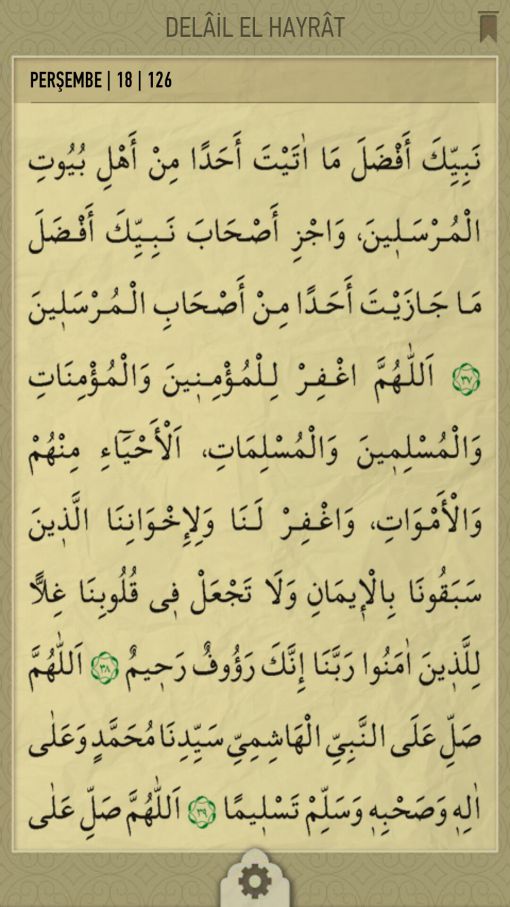 DELÂİL EL HAYRÂT
PERŞEMBE | 18 | 126
نَبِيِّكَ أَفْضَلَ مَا اٰتَيْتَ أَحَدًا مِنْ أَهْلِ بُيُوتِ
الْمُرْسَلٖينَ، وَاجْزِ أَصْحَابَ نَبِيِّكَ أَفْضَلَ
مَا جَازَيْتَ أَحَدًا مِنْ أَصْحَابِ الْمُرْسَلٖينَ
﴿٣٧﴾ اَللّٰهُمَّ اغْفِرْ لِلْمُؤْمِنٖينَ وَالْمُؤْمِنَاتِ
وَالْمُسْلِمٖينَ وَالْمُسْلِمَاتِ، اَلْأَحْيَٓاءِ مِنْهُمْ
وَالْأَمْوَاتِ، وَاغْفِرْ لَنَا وَلِإِخْوَانِنَا الَّذٖينَ
سَبَقُونَا بِالْإٖيمَانِ وَلَا تَجْعَلْ فٖى قُلُوبِنَا غِلًّا
لِلَّذٖينَ اٰمَنُوا رَبَّنَا إِنَّكَ رَؤُوفٌ رَحٖيمٌ ﴿٣٨﴾ اَللّٰهُمَّ
صَلِّ عَلَى النَّبِيِّ الْهَاشِمِيِّ سَيِّدِنَا مُحَمَّدٍ وَعَلٰى
اٰلِهٖ وَصَحْبِهٖ وَسَلِّمْ تَسْلٖيمًا ﴿٣٩﴾ اَللّٰهُمَّ صَلِّ عَلٰى